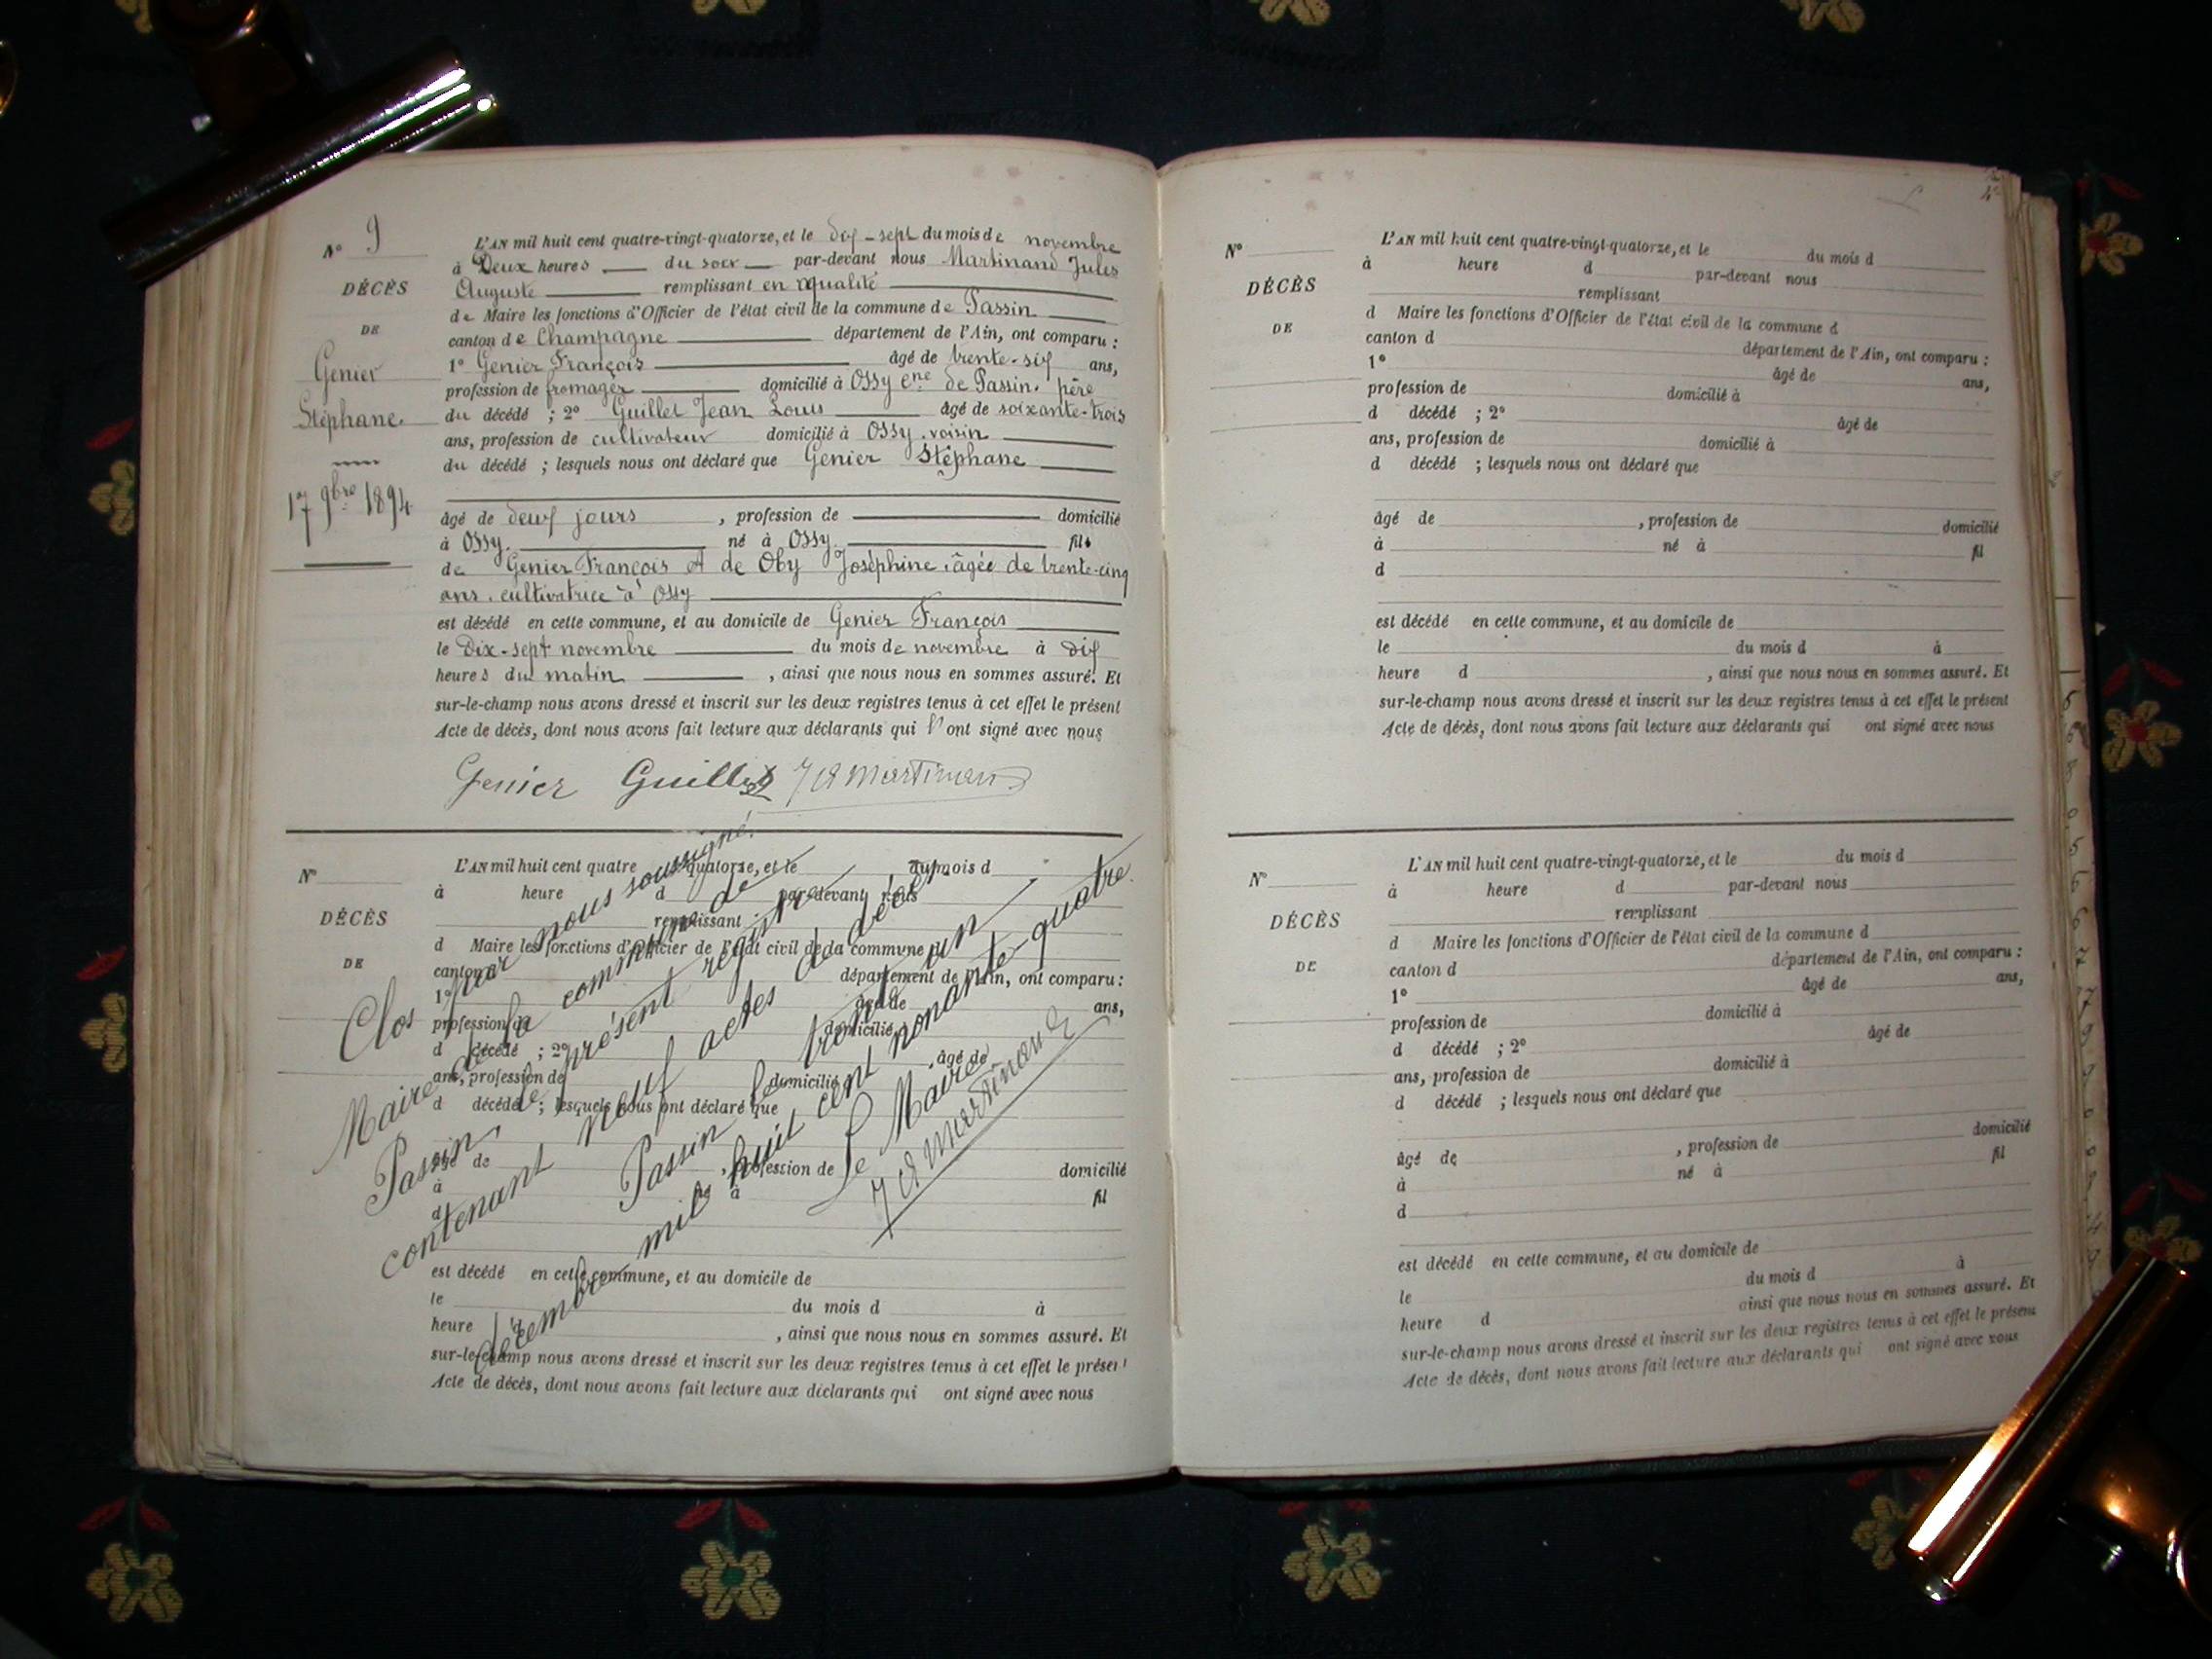 N° 9
DÉCÈS
DE
Genier
Stéphane.
17 9bre 1894
L'AN mil huit cent quatre-vingt-quatorze, et le dix-sept du mois de novembre
à Deux heures du soir par-devant nous Martinand Jules
Auguste remplissant en qualité
de Maire les fonctions d'Officier de l'état civil de la commune de Passin
canton de Champagne département de l'Ain, ont comparu :
1° Genier François âgé de trente-six ans,
profession de fromager domicilié à Ossy cne de Passin. père
du décédé ; 2° Guillet Jean Louis âgé de soixante-trois
ans, profession de cultivateur domicilié à Ossy. voisin
du décédé ; lesquels nous ont déclaré que Genier Stéphane
âgé de deux jours , profession de domicilié
à Ossy. né à Ossy. fils
de Genier François et de Oby Joséphine, âgée de trente-cinq
ans. cultivatrice à Ossy
est décédé en cette commune, et au domicile de Genier François
le Dix-sept novembre du mois de novembre à dix
heures du matin , ainsi que nous nous en sommes assuré. Et
sur-le-champ nous avons dressé et inscrit sur les deux registres tenus à cet effet le présent
Acte de décès, dont nous avons fait lecture aux déclarants qui l'ont signé avec nous
Genier Guillet J A Martinand
N°
DÉCÈS
DE
L'AN mil huit cent quatre quatorze, et le du mois d
à heure d par-devant nous
remplissant
d Maire les fonctions d'Officier de l'état civil de la commune
canton d département de l'Ain, ont comparu :
1° âgé de ans,
profession de domicilié
d décédé ; 2° âgé de
ans, profession de domicilié
d décédé ; lesquels nous ont déclaré que
âgé de , profession de domicilié
à né à fil
d
est décédé en cette commune, et au domicile de
le du mois d à
heure d , ainsi que nous nous en sommes assuré. Et
sur-le-champ nous avons dressé et inscrit sur les deux registres tenus à cet effet le présent
Acte de décès, dont nous avons fait lecture aux déclarants qui ont signé avec nous
Clos par nous soussigné
Maire de la commune de
Passin, le présent registre
contenant neuf actes de décès
Passin le trente un
décembre mil huit cent nonante-quatre.
Le Maire
J A Martinand
N°
DÉCÈS
DE
L'AN mil huit cent quatre-vingt-quatorze, et le du mois d
à heure d par-devant nous
remplissant
d Maire les fonctions d'Officier de l'état civil de la commune d
canton d département de l'Ain, ont comparu :
1° âgé de ans,
profession de domicilié à
d décédé ; 2° âgé de
ans, profession de domicilié à
d décédé ; lesquels nous ont déclaré que
âgé de , profession de domicilié
à né à fil
d
est décédé en cette commune, et au domicile de
le du mois d à
heure d , ainsi que nous nous en sommes assuré. Et
sur-le-champ nous avons dressé et inscrit sur les deux registres tenus à cet effet le présent
Acte de décès, dont nous avons fait lecture aux déclarants qui ont signé avec nous
N°
DÉCÈS
DE
L'AN mil huit cent quatre-vingt-quatorze, et le du mois d
à heure d par-devant nous
remplissant
d Maire les fonctions d'Officier de l'état civil de la commune d
canton d département de l'Ain, ont comparu :
1° âgé de ans,
profession de domicilié à
d décédé ; 2° âgé de
ans, profession de domicilié à
d décédé ; lesquels nous ont déclaré que
âgé de , profession de domicilié
à né à fil
d
est décédé en cette commune, et au domicile de
le du mois d à
heure d ainsi que nous nous en sommes assuré. Et
sur-le-champ nous avons dressé et inscrit sur les deux registres tenus à cet effet le présent
Acte de décès, dont nous avons fait lecture aux déclarants qui ont signé avec nous